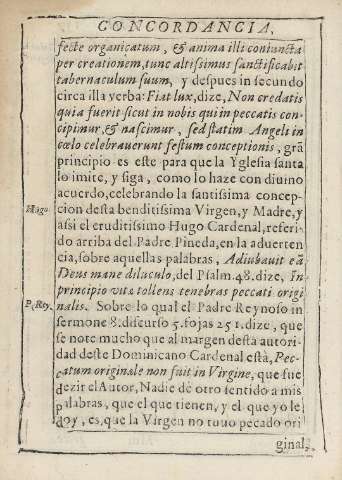 CONCORDANCIA,
fecte organicatum, & anima illi coniuncta
per creationem, tunc altissimus sanctificabit
tabernaculum suum, y despues in secundo
circa illa verba: Fiat lux, dize, Non credatis
quia fuerit sicut in nobis qui in peccatis con-
cipimur, & nascimur, sed statim Angeli in
cœlo celebrauerunt festum conceptionis, grã
principio es este para que la Yglesia santa
lo imite, y siga, como lo haze con diuino
acuerdo, celebrando la santissima concep-
Hugo. cion desta benditissima Virgen, y Madre, y
assi el eruditissimo Hugo Cardenal, referi-
do arriba del Padre Pineda, en la aduerten
cia, sobre aquellas palabras, Adiubauit eã
Deus mane diluculo, del Psalm. 48. dize, In
principio vitæ tollens tenebras peccati origi
P. Rey. nalis. Sobre lo qual el Padre Reynoso in
sermone 8. discurso 5. fojas 251. dize, que
se note mucho que al margen desta autori-
dad deste Dominicano Cardenal està, Pec-
catum originale non fuit in Virgine, que fue
dezir el Autor, Nadie dè otro sentido a mis
palabras, que el que tienen, y el que yo le
doy, es, que la Virgen no tuuo pecado ori
ginal,